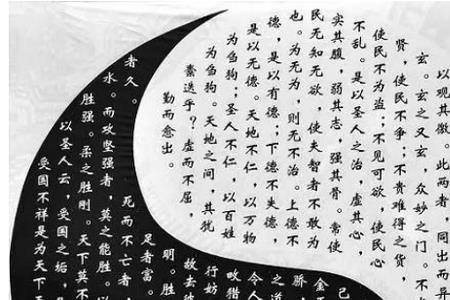 以观其徼。此两者,同出而异
玄。玄之又玄,众妙之门。不
贤,使民不争;不贵难得之货,
使民不为盗;不见可欲,使民心
不乱。是以圣人之治,虚其心,
实其腹,弱其志,强其骨。常使
民无知无欲,使夫智者不敢为
也。为无为,则无不治。上德不
德,是以有德;下德不失德,
是以无德。天地不仁,以万物
为刍狗;圣人不仁,以百姓
为刍狗。天地之间,其犹
橐迭乎?虚而不屈,
勤而愈出。
己
金
骄
之道
令人
畋猎
行妨
故去彼
明。胜
足者富。
死而不亡者,
者久。
水。而攻坚强者,莫之能胜。以
胜强。柔之胜刚。天下莫不
以圣人云,受国之垢,是
受国不祥是为天下